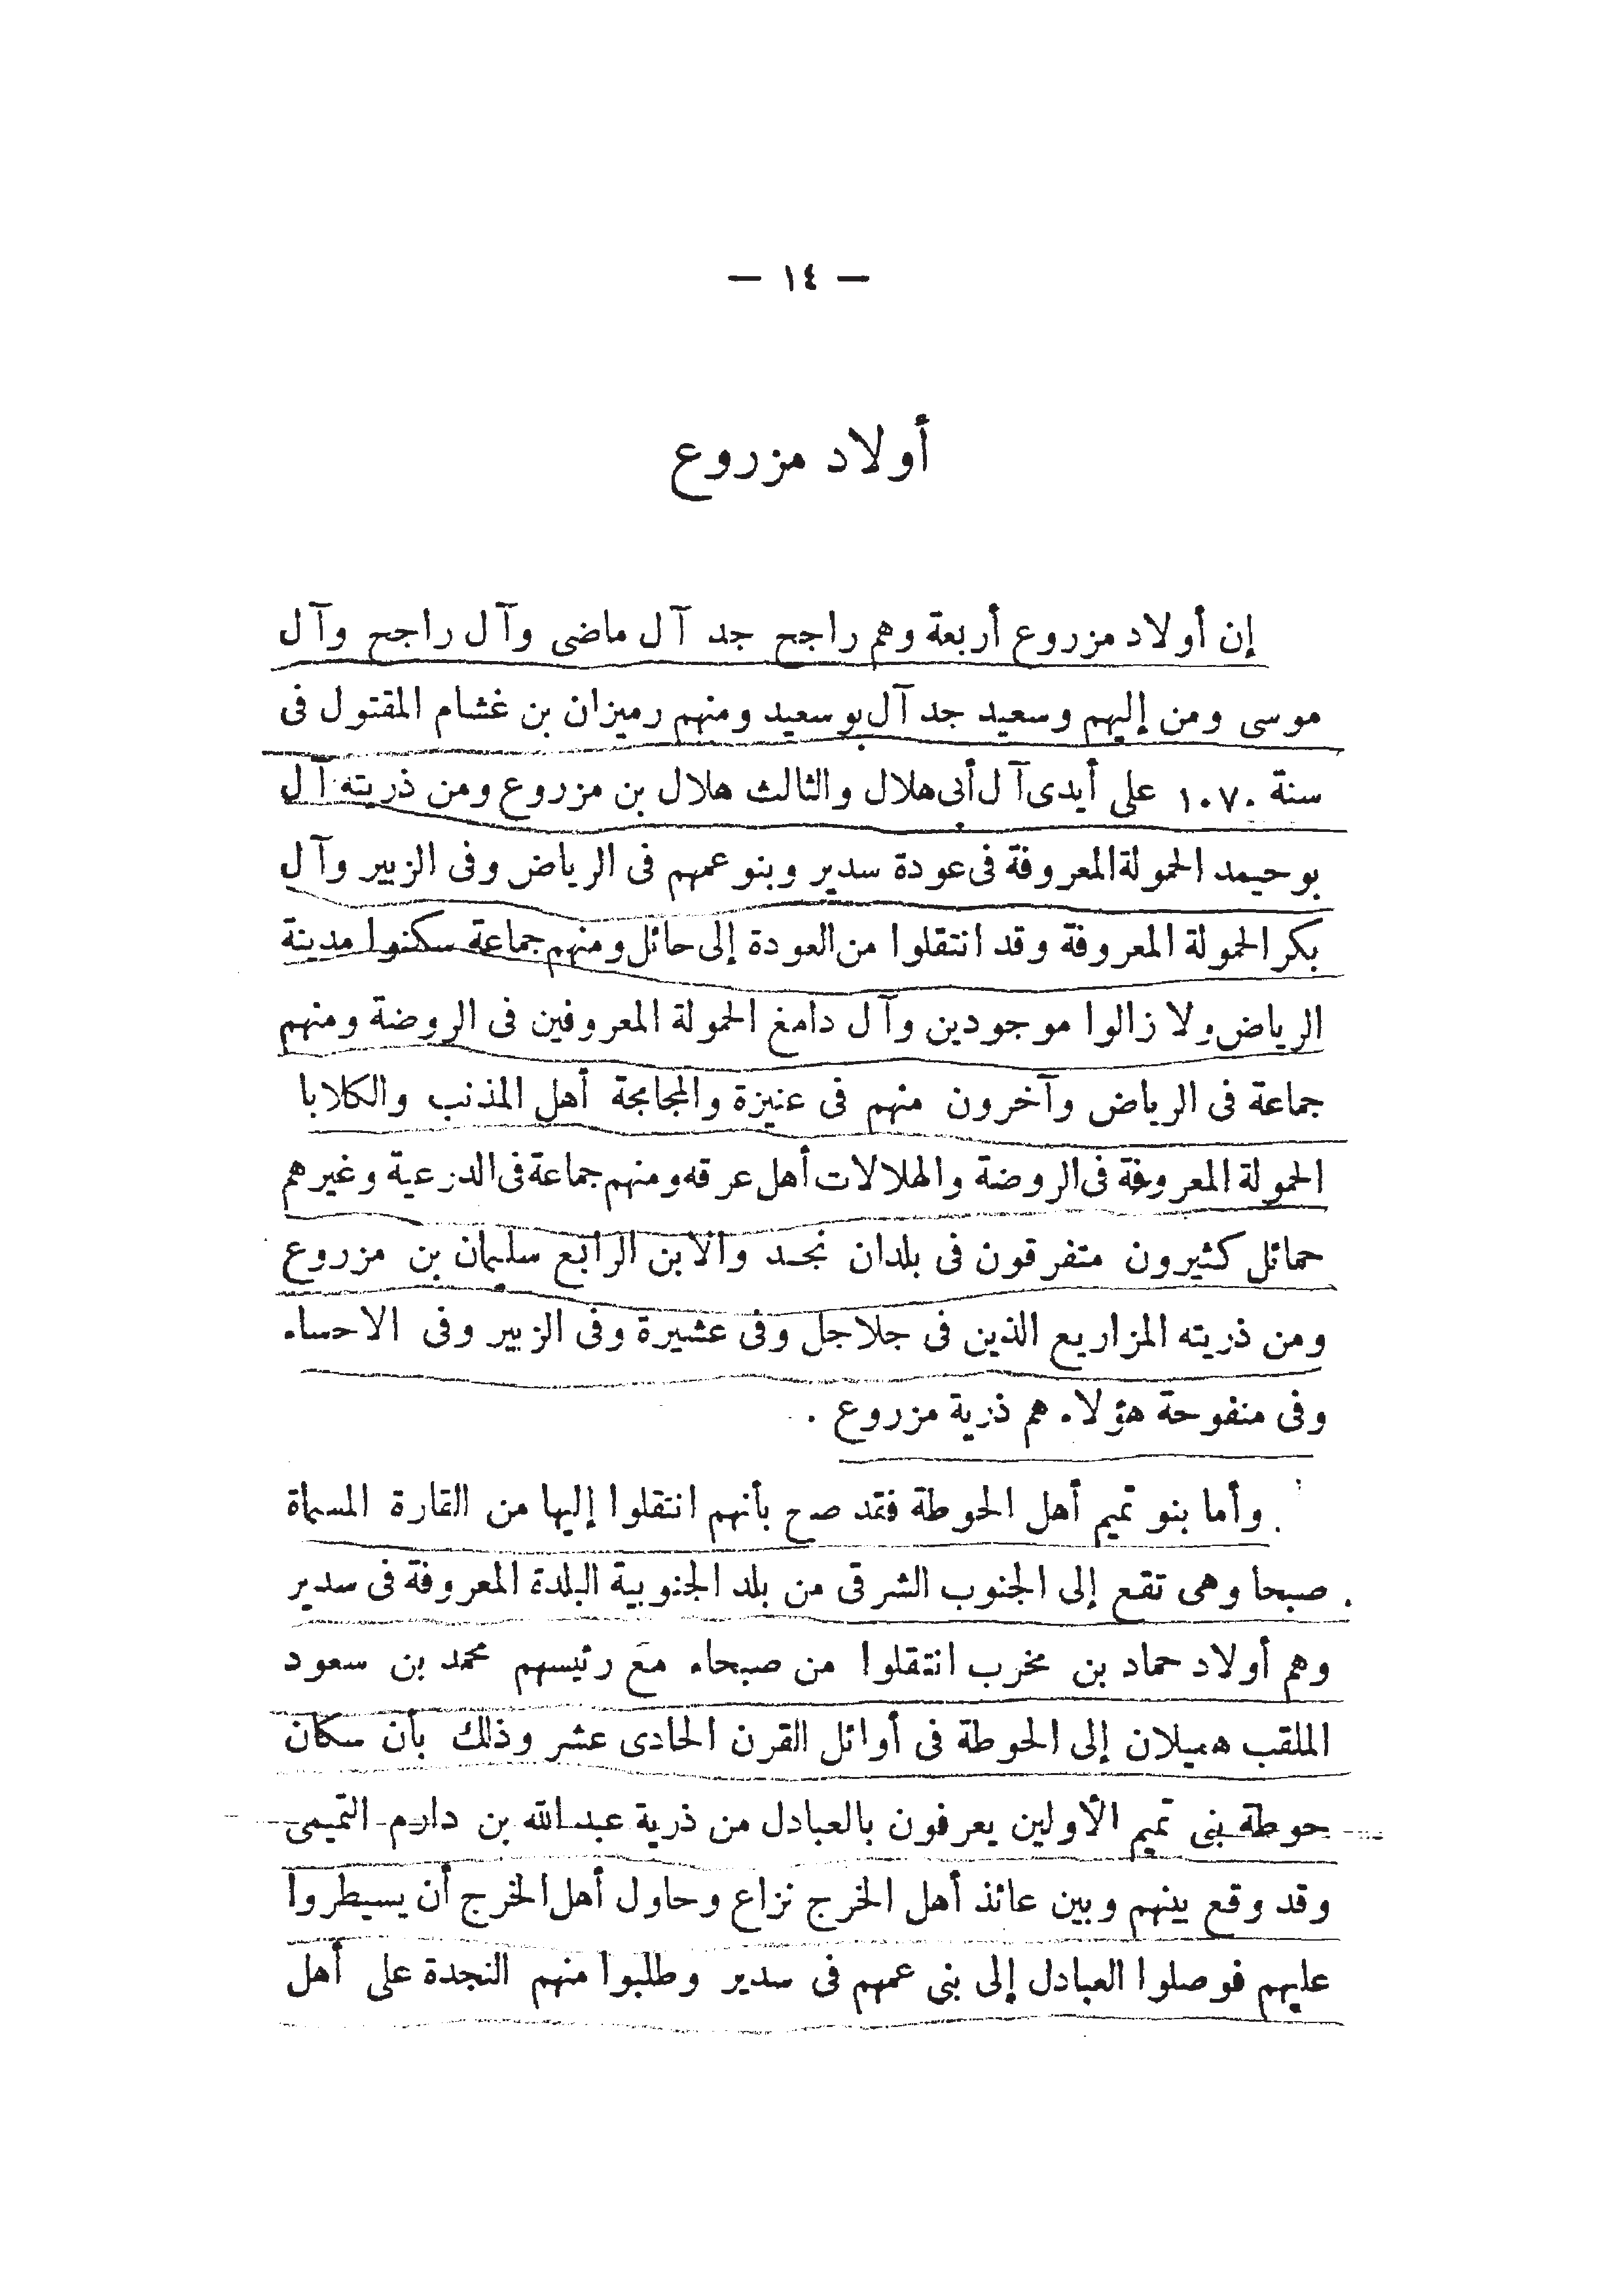 — ١٤ —
أولاد مزروع
إن أولاد مزروع أربعة وهم راجح جد آل ماضى وآل راجح وآل
موسى ومن إليهم وسعيد جد آل بوسعيد ومنهم رميزان بن غشام المقتول فى
سنة ١٠٧٠ على أيدى آل أبى هلال والثالث هلال بن مزروع ومن ذريته آل
بوحيمد الحمولة المعروفة فى عودة سدير وبنو عمهم فى الرياض وفى الزبير وآل
بكر الحمولة المعروفة وقد انتقلوا من العودة إلى حائل ومنهم جماعة سكنوا مدينة
الرياض ولا زالوا موجودين وآل دامغ الحمولة المعروفين فى الروضة ومنهم
جماعة فى الرياض وآخرون منهم فى عنيزة والمجامجة أهل المذنب والكلابا
الحمولة المعروفة فى الروضة والهلالات أهل عرقه ومنهم جماعة فى الدرعية وغيرهم
حمائل كثيرون متفرقون فى بلدان نجد والابن الرابع سليمان بن مزروع
ومن ذريته المزاريع الذين فى جلاجل وفى عشيرة وفى الزبير وفى الاحساء
وفى منفوحة هؤلاء هم ذرية مزروع .
وأما بنو تميم أهل الحوطة فقد صح بأنهم انتقلوا إليها من القارة المسماة
صبحا وهى تقع إلى الجنوب الشرقى من بلد الجنوبية البلدة المعروفة فى سدير
وهم أولاد حماد بن مخرب انتقلوا من صبحاء مع رئيسهم محمد بن سعود
الملقب هميلان إلى الحوطة فى أوائل القرن الحادى عشر وذلك بأن سكان
حوطة بنى تميم الأولين يعرفون بالعبادل من ذرية عبد الله بن دارم التميمى
وقد وقع بينهم وبين عائذ أهل الخرج نزاع وحاول أهل الخرج أن يسيطروا
عليهم فوصلوا العبادل إلى بنى عمهم فى سدير وطلبوا منهم النجدة على أهل